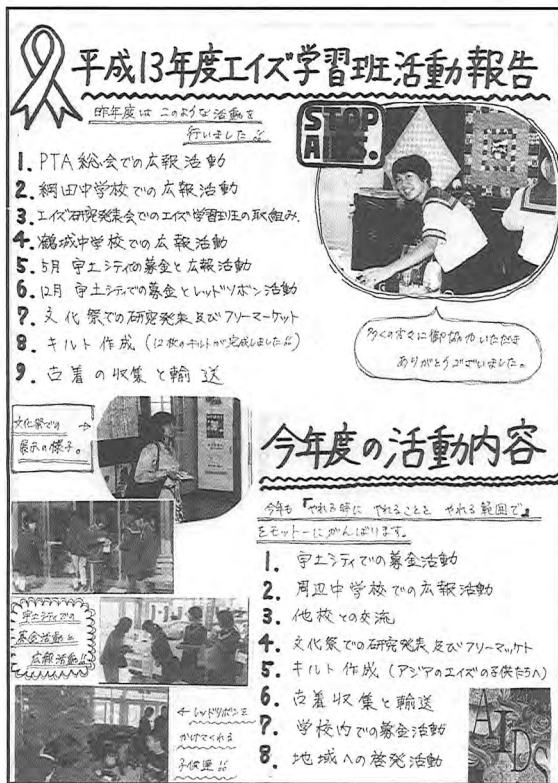 平成13年度エイズ学習班活動報告
昨年度はこのような活動を
行いました!!
STOP
AIDS.
1. PTA総会での広報活動
2. 網田中学校での広報活動
3. エイズ研究発表会でのエイズ学習班の取組み.
4. 鶴城中学校での広報活動
5. 5月 宇土シティでの募金と広報活動
6. 12月 宇土シティでの募金とレッドリボン活動
7. 文化祭での研究発表及びフリーマーケット
8. キルト作成(12枚のキルトが完成しました!!)
9. 古着の収集と輸送
多くの方々に御協力いただき
ありがとうございました。
文化祭での →
展示の様子。
今年度の活動内容
今年も『やれる時に やれることを やれる範囲で』
をモットーにがんばります。
1. 宇土シティでの募金活動
2. 周辺中学校での広報活動
3. 他校との交流
4. 文化祭での研究発表及びフリーマーケット
5. キルト作成(アジアのエイズの子供たちへ)
6. 古着収集と輸送
7. 学校内での募金活動
8. 地域への啓発活動
宇土シティでの
募金活動と
広報活動!!
← レッドリボンを
かけてくれる
子供達!!
AIDS